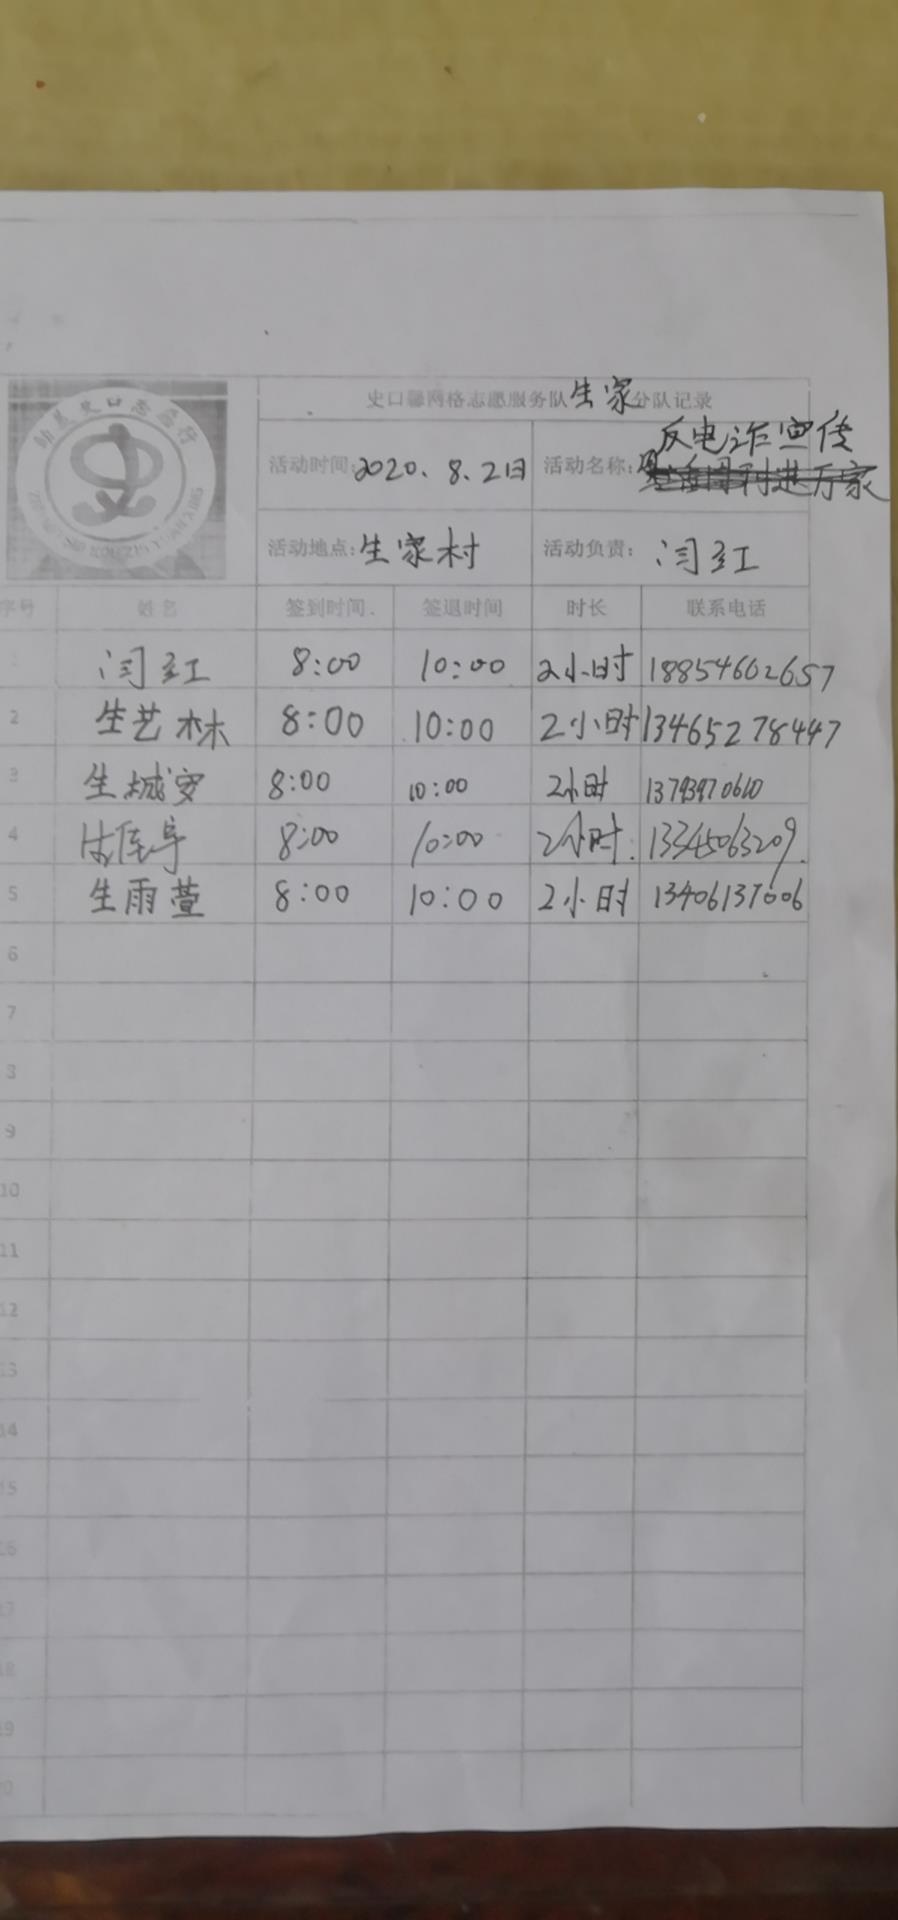 史口馨网格志愿服务队生家分队记录
活动时间:2020.8.2日 活动名称:反电诈宣传
活动地点:生家村 活动负责:闫红
序号 姓名 签到时间 签退时间 时长 联系电话
1 闫红 8:00 10:00 2小时 18854602657
2 生艺林 8:00 10:00 2小时 13465278447
3 生城安 8:00 10:00 2小时 13793970610
4 8:00 10:00 2小时 13345063209
5 生雨萱 8:00 10:00 2小时 13406137006
6
7
8
9
10
11
12
13
14
15
16
17
18
19
20